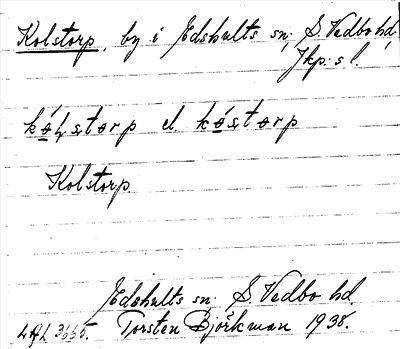 Kolstorp, by i Edshults sn, S. Vedbo hd,
Jkp: s l.
kó̱ɫstərp el. kó̱stərp
Kolstorp
Edshults sn. S. Vedbo hd.
Torsten Björkman 1938.